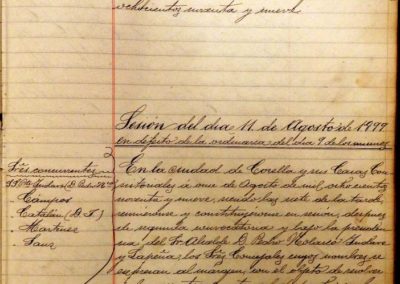 ochocientos noventa y nueve.
Sesión del dia 11 de Agosto de 1899
en defecto de la ordinaria del dia 9 de los mismos
Sres concurrentes
Campos
Catalán (D. F.)
Martinez
Sanz
En la Ciudad de Corella y sus Casas Con
sistoriales a once de Agosto de mil ochocientos
noventa y nueve, siendo las siete de la tarde
reunieronse y constituyeronse en sesión, despues
de segunda convocatoria y bajo la presiden
cia del Sr. Alcalde D. Pedro Nolasco
y los Sres Concejales cuyos nombres se
expresan al margen, con el objeto de resolver